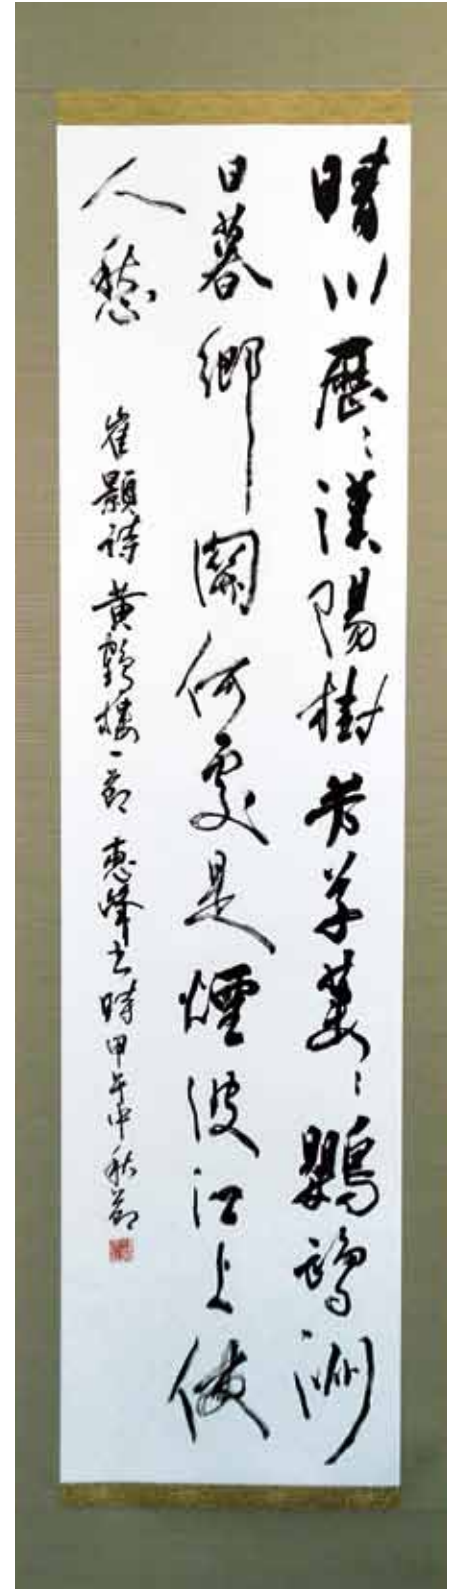 晴川歴〻漢陽樹芳草萋〻鸚鵡洲
日暮鄉關何處是煙波江上使
人愁 崔顥詩 黄鶴樓一節 惠峰書 時甲午中秋節